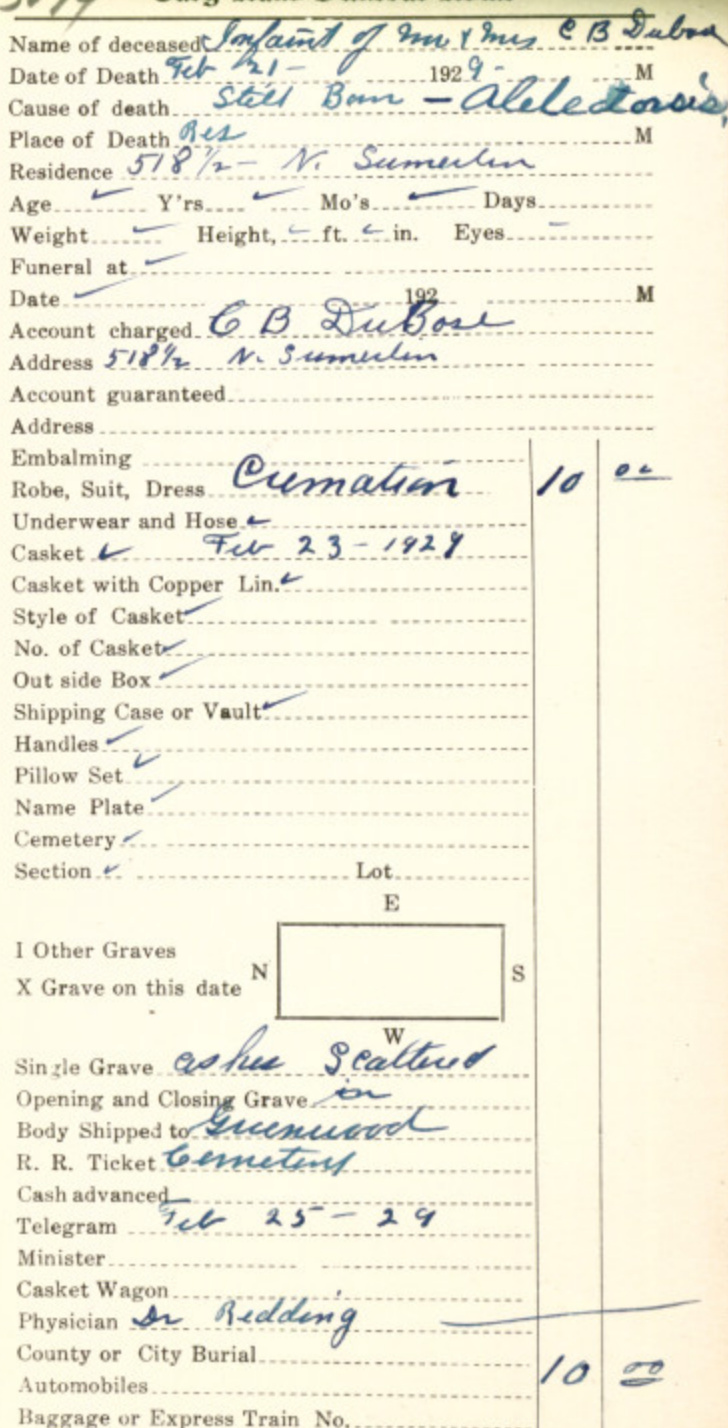 Name of deceased Infaint of Mr & Mrs C B Dubose
Date of Death Feb 21- 1929- M
Cause of death Still Born - Alelectorsis,
Place of Death Res M
Residence 518 1/2 - N. Sumerlin
Age Y'rs Mo's Days
Weight Height, ft. in. Eyes
Funeral at
Date 192 M
Account charged C B DuBose
Address 518 1/2 N. Sumerlin
Account guaranteed
Address
Embalming
Robe, Suit, Dress Cremation 10 00
Underwear and Hose
Casket Feb 23-1929
Casket with Copper Lin.
Style of Casket
No. of Casket
Out side Box
Shipping Case or Vault
Handles
Pillow Set
Name Plate
Cemetery
Section Lot
E
I Other Graves
N S
X Grave on this date
W
Single Grave ashes Scattered
Opening and Closing Grave in
Body Shipped to Greenwood
R. R. Ticket Cemetery
Cash advanced
Telegram Feb 25-29
Minister
Casket Wagon
Physician Dr Redding
County or City Burial 10 00
Automobiles
Baggage or Express Train No.